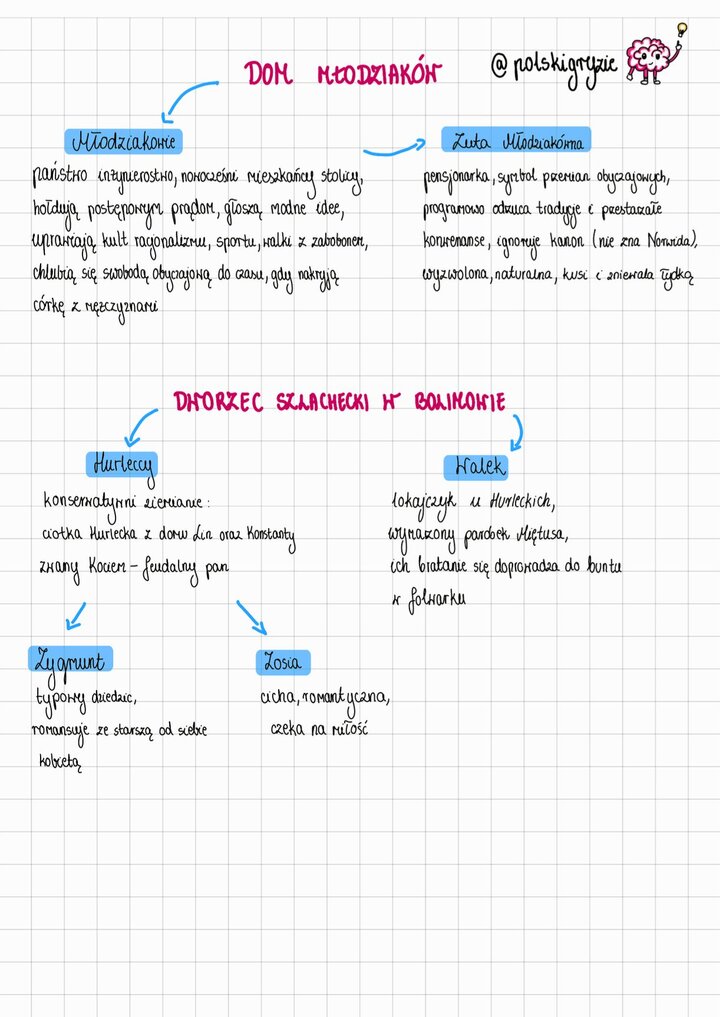 DOM MŁODZIAKÓW
@polskigryzie
Młodziakowie
państwo inżynierostwo, nowocześni mieszkańcy stolicy,
hołdują postępowym prądom, głoszą modne idee,
uprawiają kult racjonalizmu, sportu, walki z zabobonem,
chlubią się swobodą obyczajową do czasu, gdy nakryją
córkę z mężczyznami
Zuta Młodziakówna
pensjonarka, symbol przemian obyczajowych,
programowo odrzuca tradycję i przestarzałe
konwenanse, ignoruje kanon (nie zna Norwida),
wyzwolona, naturalna, kusi i zniewala łydką
DWORZEC SZLACHECKI W BOLIMOWIE
Hurleccy
konserwatywni ziemianie:
ciotka Hurlecka z domu Lin oraz Konstanty
zwany Kociem – feudalny pan
Walek
lokajczyk u Hurleckich,
wymarzony parobek Miętusa,
ich bratanie się doprowadza do buntu
w folwarku
Zygmunt
typowy dziedzic,
romansuje ze starszą od siebie
kobietą
Zosia
cicha, romantyczna,
czeka na miłość